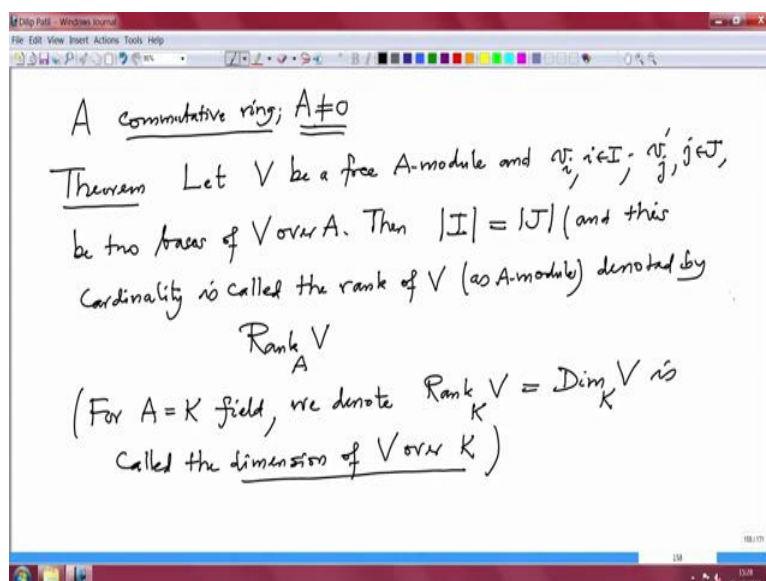 Dilip Patil - Windows Journal
File Edit View Insert Actions Tools Help
A commutative ring; A ≠ 0
Theorem Let V be a free A-module and v_i, i∈I; v'_j, j∈J,
be two bases of V over A. Then |I| = |J| (and this
Cardinality is called the rank of V (as A-module) denoted by
Rank_A V
(For A = K field, we denote Rank_K V = Dim_K V is
Called the dimension of V over K)
158
15:28